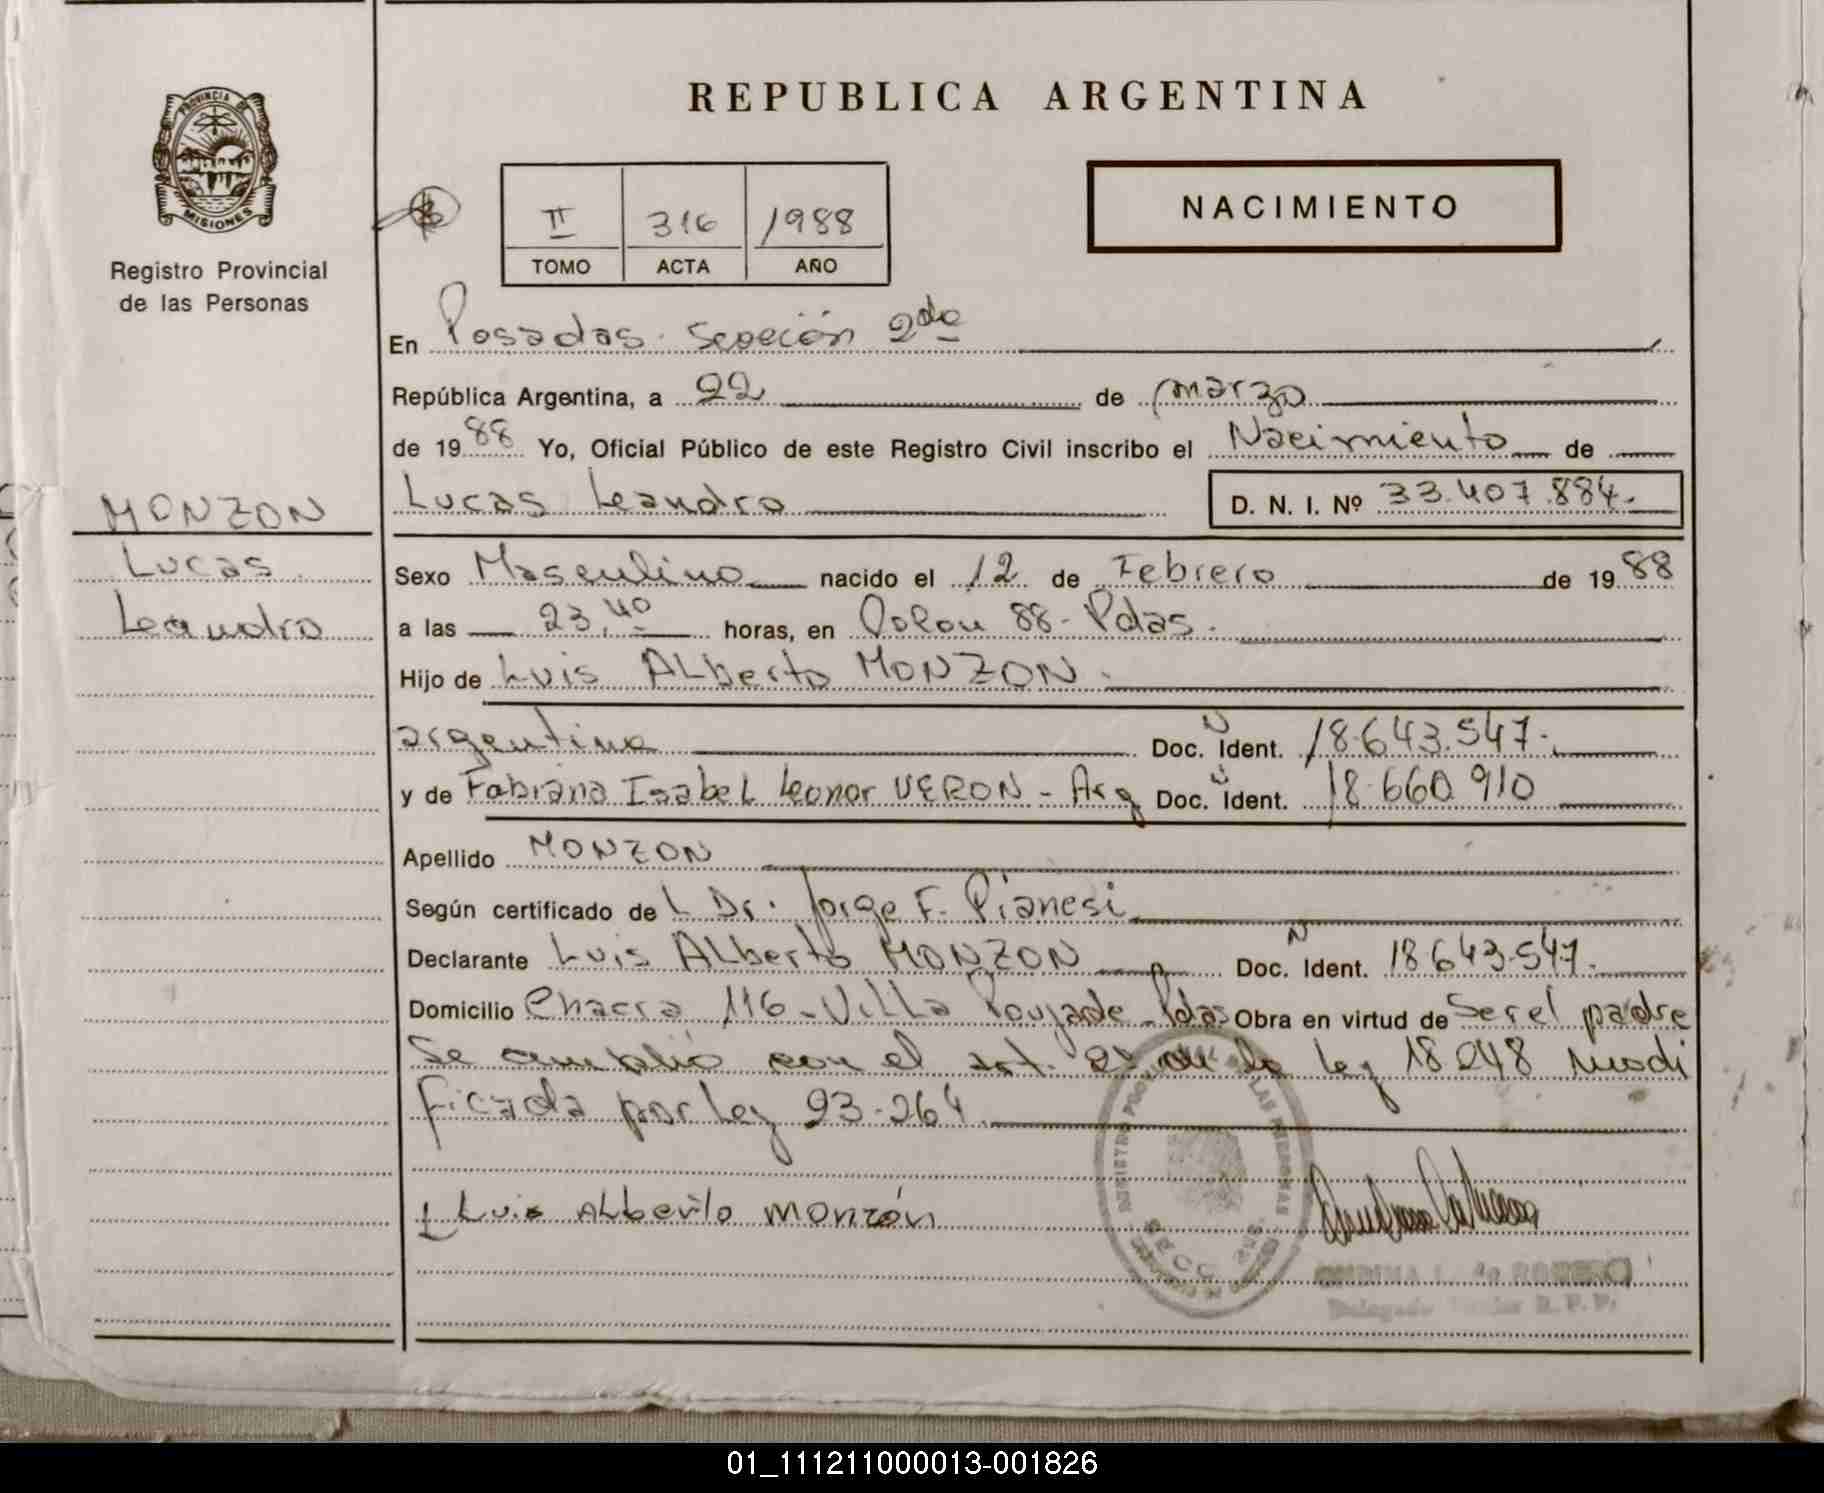 REPUBLICA ARGENTINA
PROVINCIA DE
MISIONES
Registro Provincial
de las Personas
NACIMIENTO
II 316 1988
TOMO ACTA AÑO
En Posadas. Sección 2da
República Argentina, a 22 de marzo
de 1988 Yo, Oficial Público de este Registro Civil inscribo el Nacimiento de
Lucas Leandro D. N. I. Nº 33.407.884.
MONZON
Lucas
Leandro
Sexo Masculino nacido el 12 de Febrero de 1988
a las 23,40 horas, en Colon 88- Pdas.
Hijo de Luis ALberto MONZON.
argentino Doc. N Ident. 18.643.547.
y de Fabiana Isabel Leonor VERON - Arg Doc. N Ident. 18.660.910
Apellido MONZON
Según certificado deL Dr. Jorge F. Pianesi
Declarante Luis ALberto MONZON Doc. N Ident. 18.643.547.
Domicilio Chacra 116-Villa Poujade-Pdas Obra en virtud de Ser el padre
Se cumplió con el art. 2º de la ley 18248 modi
ficada por ley 23.264
Luis ALberto monzón
01_111211000013-001826